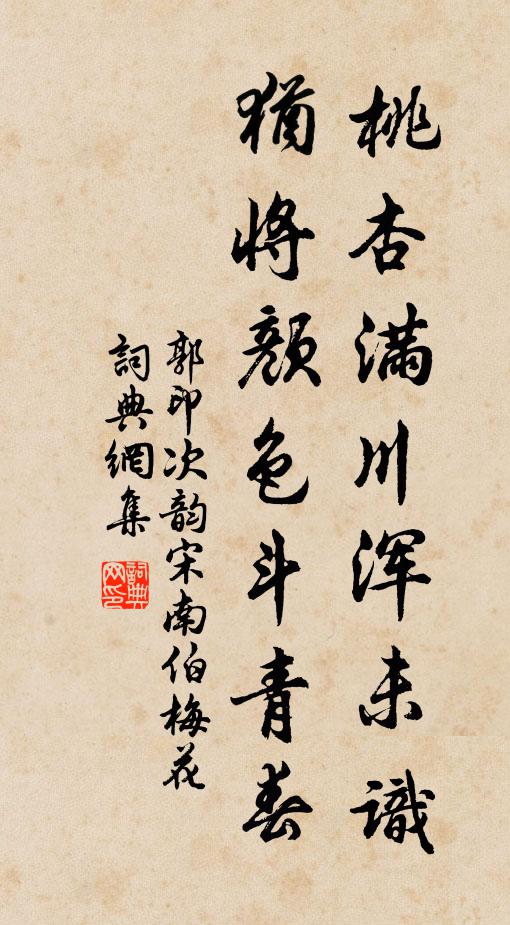 桃杏滿川浑未識
猶將顏色斗青春
郭印次韵宋南伯梅花
詞典網集
詞典网印